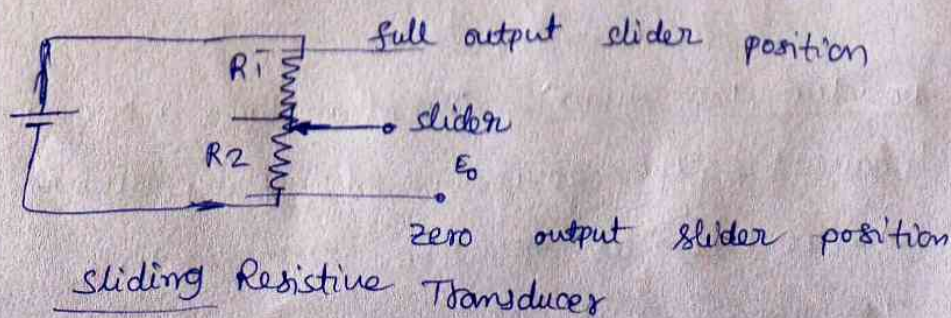 full output slider position
R1
slider
R2
E0
zero output slider position
Sliding Resistive Transducer